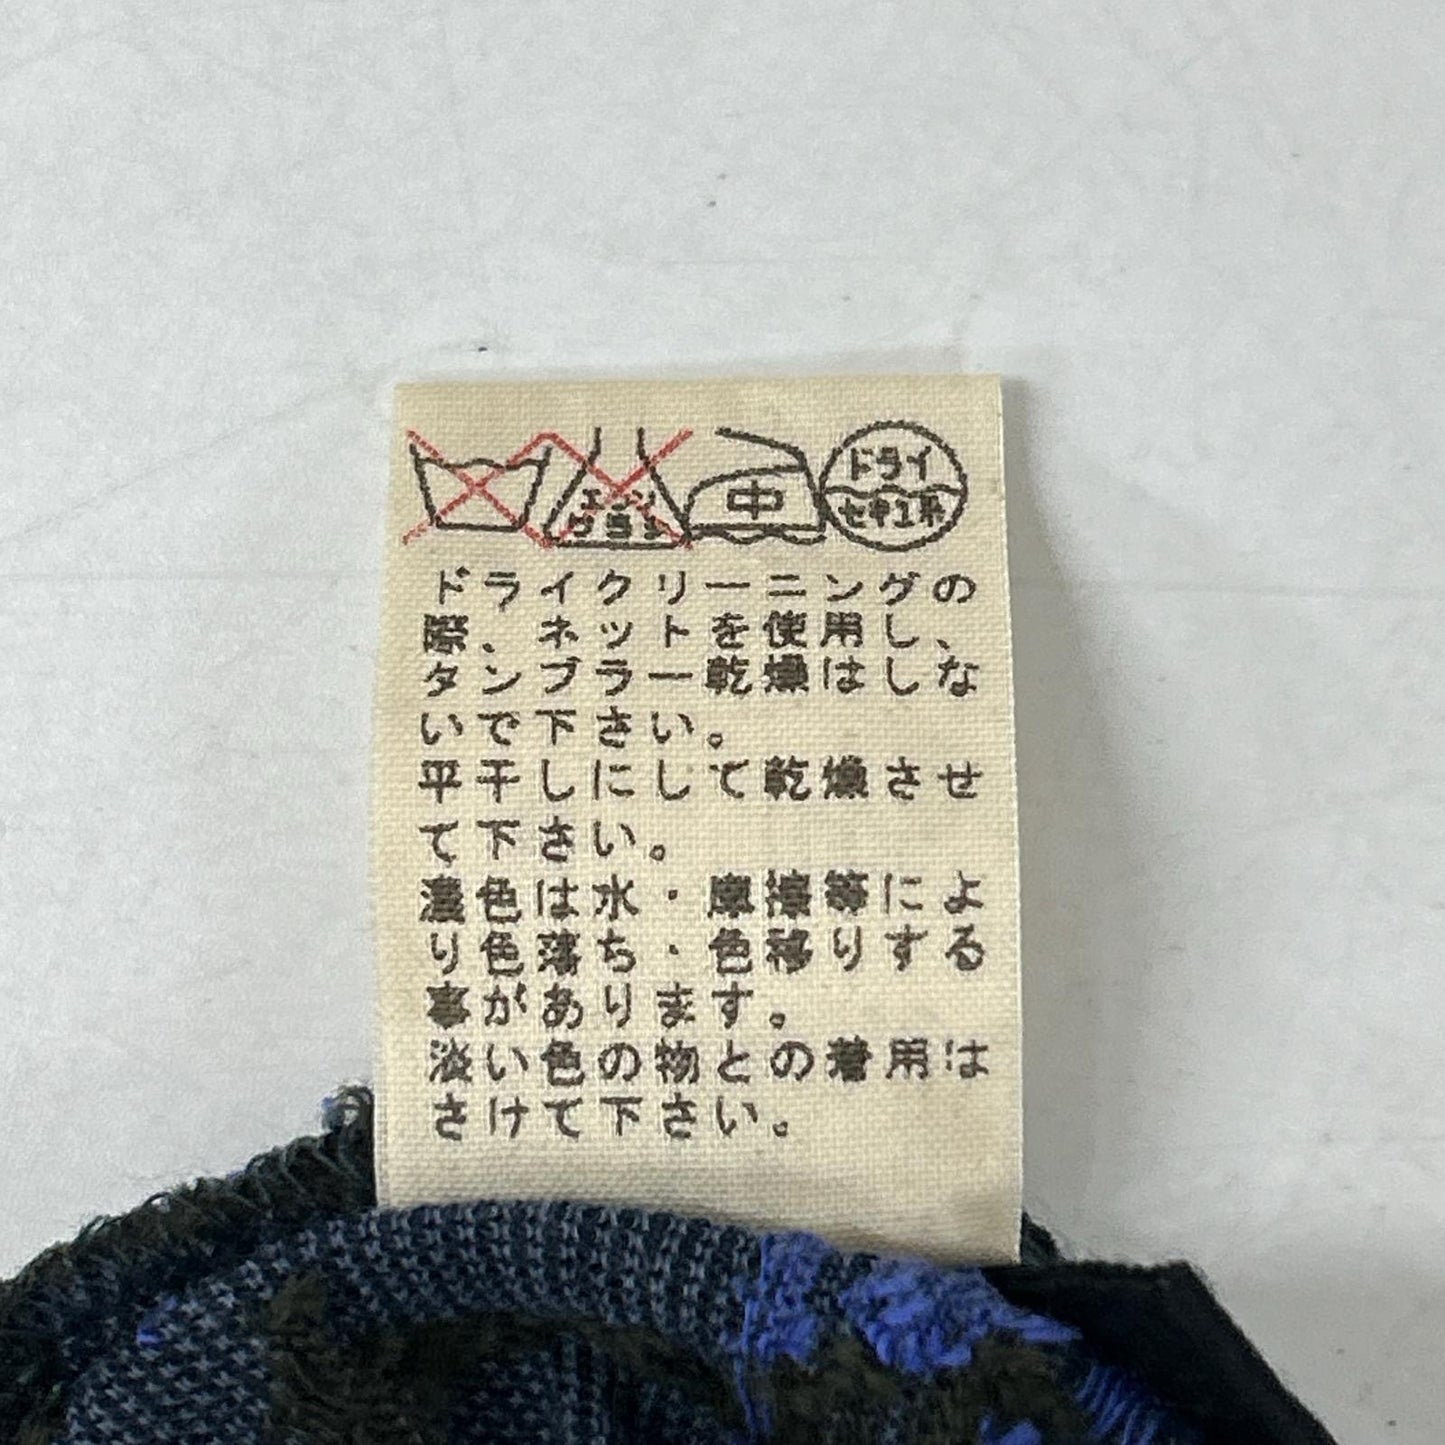 エンソ
サラシ
中
ドライ
セキユ系
ドライクリーニングの
際、ネットを使用し、
タンブラー乾燥はしな
いで下さい。
平干しにして乾燥させ
て下さい。
濃色は水・摩擦等によ
り色落ち・色移りする
事があります。
淡い色の物との着用は
さけて下さい。